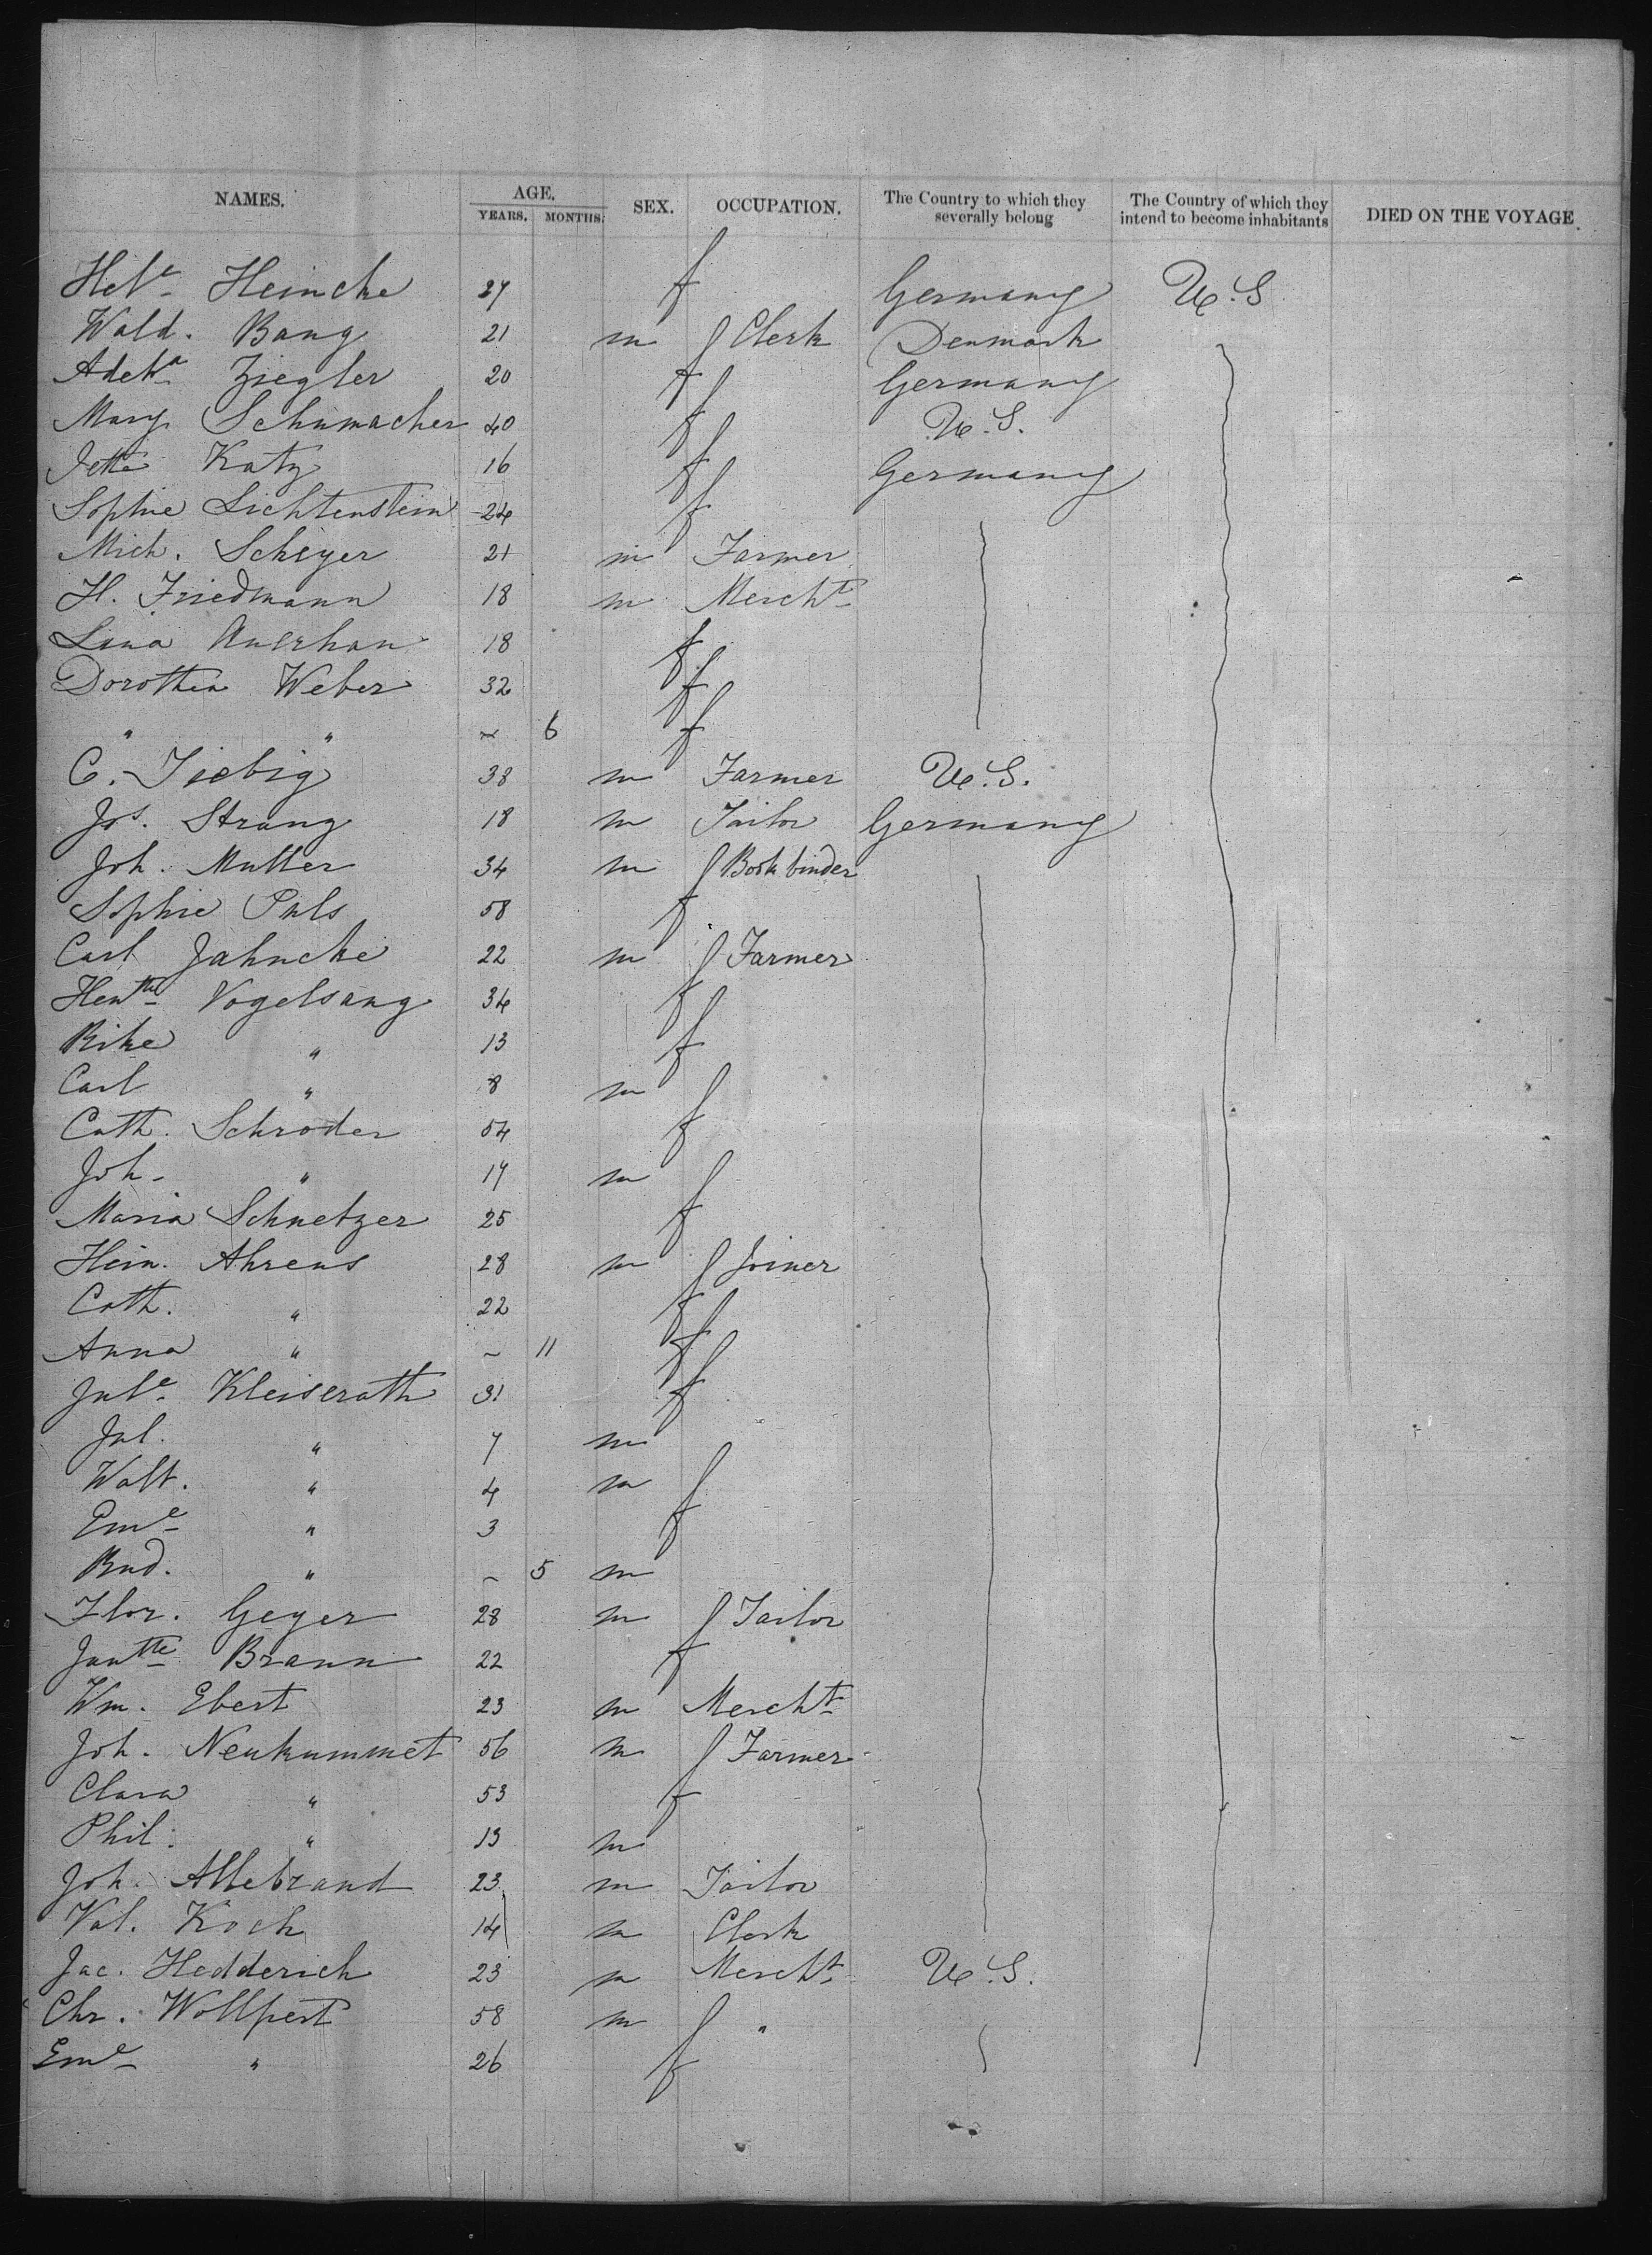 NAMES. AGE. SEX. OCCUPATION. The Country to which they severally belong The Country of which they intend to become inhabitants DIED ON THE VOYAGE.
YEARS. MONTHS.
Hel^e Heincke 27 f Germany U.S
Wald. Bang 21 m Clerk Denmark
Ziegler 20 f Germany
Mary Schumacher 40 f U.S.
Jette Katz 16 f Germany
Sophie Lichtenstein 24 f
Mich. Scheyer 21 m Farmer
H. Friedmann 18 m Mercht
Lina Auerhan 18 f
Dorothea Weber 32 f
" " ~ 6 f
C. Fiebig 38 m Farmer U.S.
Jos. Strang 18 m Tailor Germany
Joh. Muller 34 m Bookbinder
Sophie Puls 58 f
Carl Jahncke 22 m Farmer
Hentte Vogelsang 34 f
Rike " 13 f
Carl " 8 m
Cath. Schroder 54 f
Joh. " 17 m
Maria Schnetzer 25 f
Hein. Ahrens 28 m Joiner
Cath. " 22 f
Anna " ~ 11 f
Jul^e Kleiserath 31 f
Jul. " 7 m
Walt. " 4 m
Em^e " 3 f
Rud. " ~ 5 m
Flor. Geyer 28 m Tailor
Jeantte Braun 22 f
Wm. Ebert 23 m Mercht
Joh. Neukummet 56 m Farmer
Clara " 53 f
Phil. " 13 m
Joh. Allebrand 23 m Tailor
Val. Koch 14 m Clerk
Jac. Hedderich 23 m Mercht U.S.
Chr. Wollpert 58 m "
Em^e " 26 f